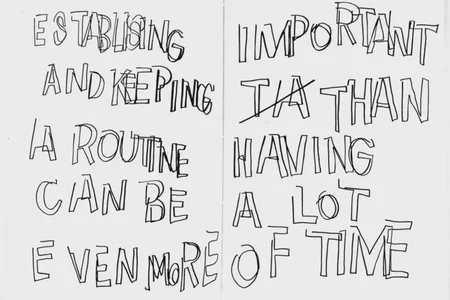 ESTABLISHING
AND KEEPING
A ROUTINE
CAN BE
EVEN MORE
IMPORTANT
TA THAN
HAVING
A LOT
OF TIME